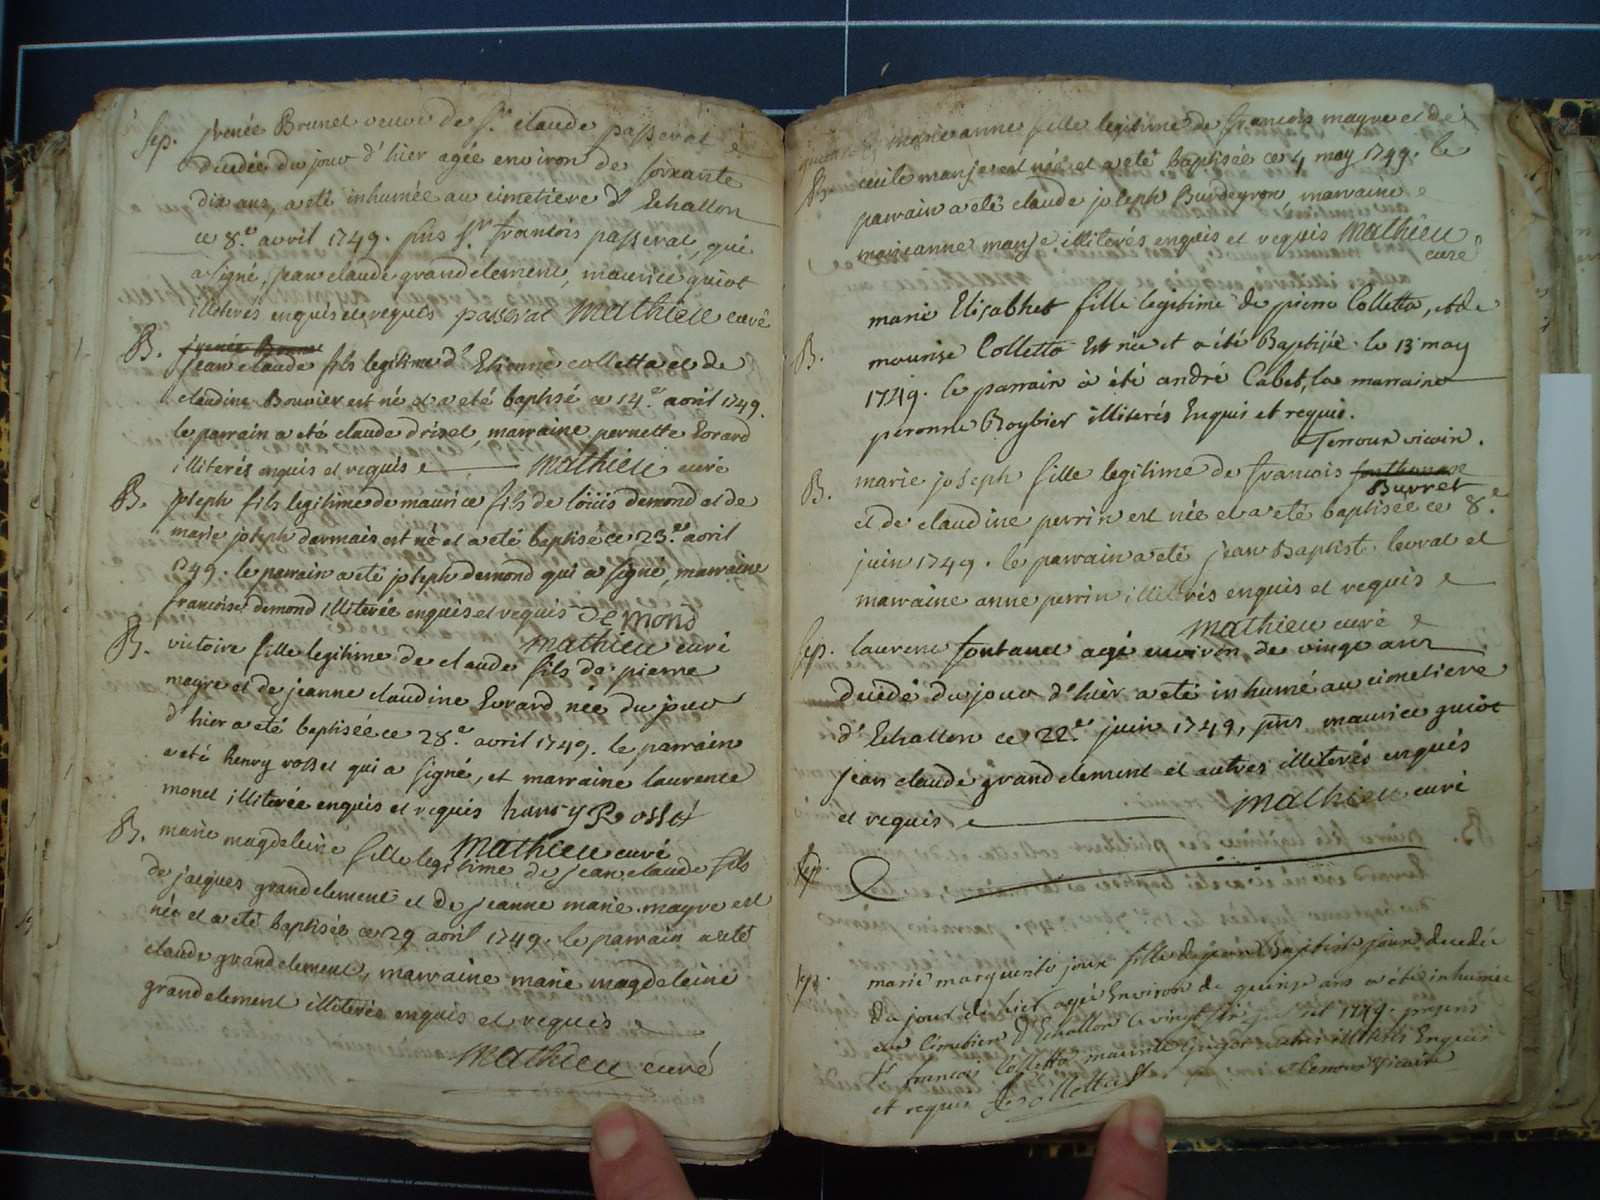 Sep. jrenée Brunet veuve de Sr. claude passerat
decedée du jour d'hier agée environ de soixante
dix ans, a eté inhumée au cimetiere d'Echallon
ce 8.e avril 1749. pns Sr francois passerat, qui
a signé, jean claude grandclement, maurice guiot
illiterés enquis et requis passerat Mathieu curé
B. jrenée Brune
jean claude fils legitime d'Etienne colletta et de
claudine Bouvier est né et a eté baptisé ce 14.e avril 1749.
le parrain a eté claude drisel, marraine pernette Evrard
illiterés enquis et requis Mathieu curé
B. joseph fils legitime de maurice fils de loüis demond et de
marie joseph darmais est né et a eté baptisé ce 23.e avril
1749. le parrain a eté joseph demond qui a signé, marraine
francoise demond illiterée enquis et requis demond
Mathieu curé
B. victoire fille legitime de claude fils de pierre
mayre et de jeanne claudine Evrard née du jour
d'hier a eté baptisée ce 28.e avril 1749. le parrain
a eté henry rosset qui a signé, et marraine laurence
monet illiterée enquis et requis hanry Rosset
Mathieu curé
B. marie magdeleine fille legitime de jean claude fils
de jacques grandclement et de jeanne marie mayre est
née et a eté baptisée ce 29 avril 1749. le parrain a eté
claude grandclement, marraine marie magdeleine
grandclement illiterés enquis et requis
Mathieu curé
marie anne fille legitime de francois mayre et de
B. cecile manje est née et a eté baptisée ce 4 may 1749. le
parrain a eté claude joseph Burdeyron, marraine
marieanne manje illiterés enquis et requis Mathieu
curé
marie Elisabhet fille legitime de pierre Colletta, et de
B. maurise Colletta Est née et a été Baptisée le 13 may
1749. le parrain à été andré Cabet, la marraine
peronne Roybier illiterés Enquis et requis.
Ternoux vicair.
B. marie joseph fille legitime de francois
Burret
et de claudine perrin est née et a eté baptisée ce 8.e
juin 1749. le parrain a eté jean Baptist levrat et
marraine anne perrin illiterés enquis et requis
Mathieu curé
Sep. laurent fontanet agé environ de vingt ans
decedé du jour d'hier a eté inhumé au cimetiere
d'Echallon ce 22.e juin 1749, pns maurice guiot
jean claude grandclement et autres illiterés enquis
et requis Mathieu curé
Sep.
Sep. marie marguerite joux fille de jean Baptiste joux decedée
du jour de hier agée Environ de quinze ans a été inhumée
au Cimetiere d'Echallon le vingt juillet 1749. presens
Sr francois Colletta maurice Guigot autres illiterés Enquis
et requis f colletta Ternoux vicair